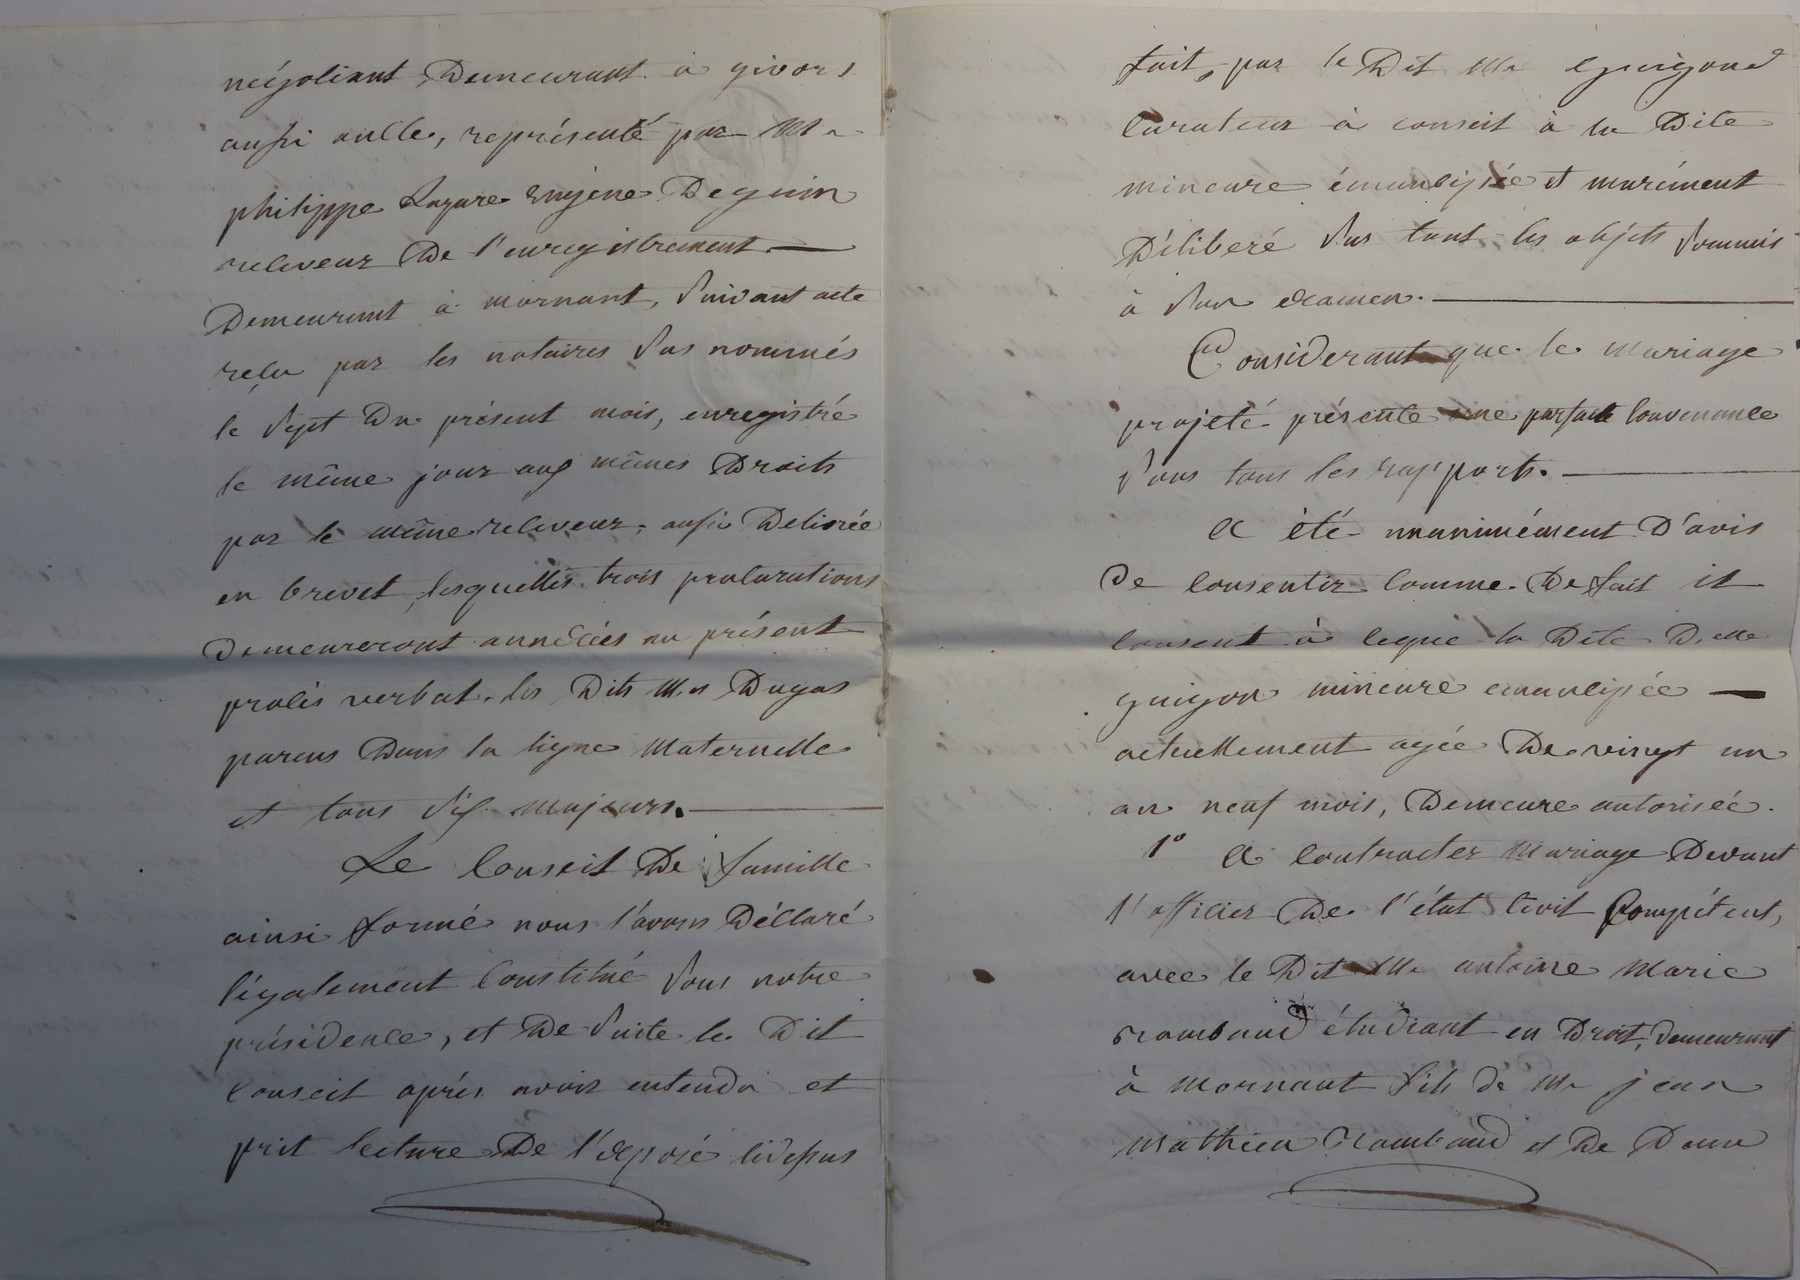 négociant Demeurant à givors
aussi oncle, représenté par Mr
philippe Lazare Eugene Deguin
receveur De l'enregistrement
Demeurant à mornant, suivant acte
reçu par les notaires sus nommés
le sept Du présent mois, enregistré
le même jour aux mêmes Droits
par le même receveur, aussi Delivrée
en brevet, lesquelles trois procurations
Demeureront annexées au présent
procès verbal. les Dits Mrs Dugas
parens Dans la ligne Maternelle
et tous six majeurs.
Le Conseil De famille
ainsi formé nous l'avons Déclaré
légalement Constitué sous notre
présidence, et De suite le Dit
Conseil après avoir entendu et
prit lecture De l'exposé cidessus
fait, par le Dit Mr Guigond
Curateur à conseil à la Dite
mineure émancipée et murément
Déliberé sur tout les objets soumis
à son examen.
Considerant que le Mariage
projeté présente une parfaite Convenance
sous tous les rapports.
A été unanimément D'avis
De Consentir Comme De fait il
Consent à ceque la Dite Delle
guigon mineure emancipée
actuellement agée De vingt un
an neuf mois, Demeure autorisée.
1° A Contracter Mariage Devant
l'officier De l'état Civil Compétent,
avec le Dit Mr antoine Marie
rambaud étudiant en Droit, demeurant
à Mornant fils de Mr jean
Mathieu rambaud et De Dame